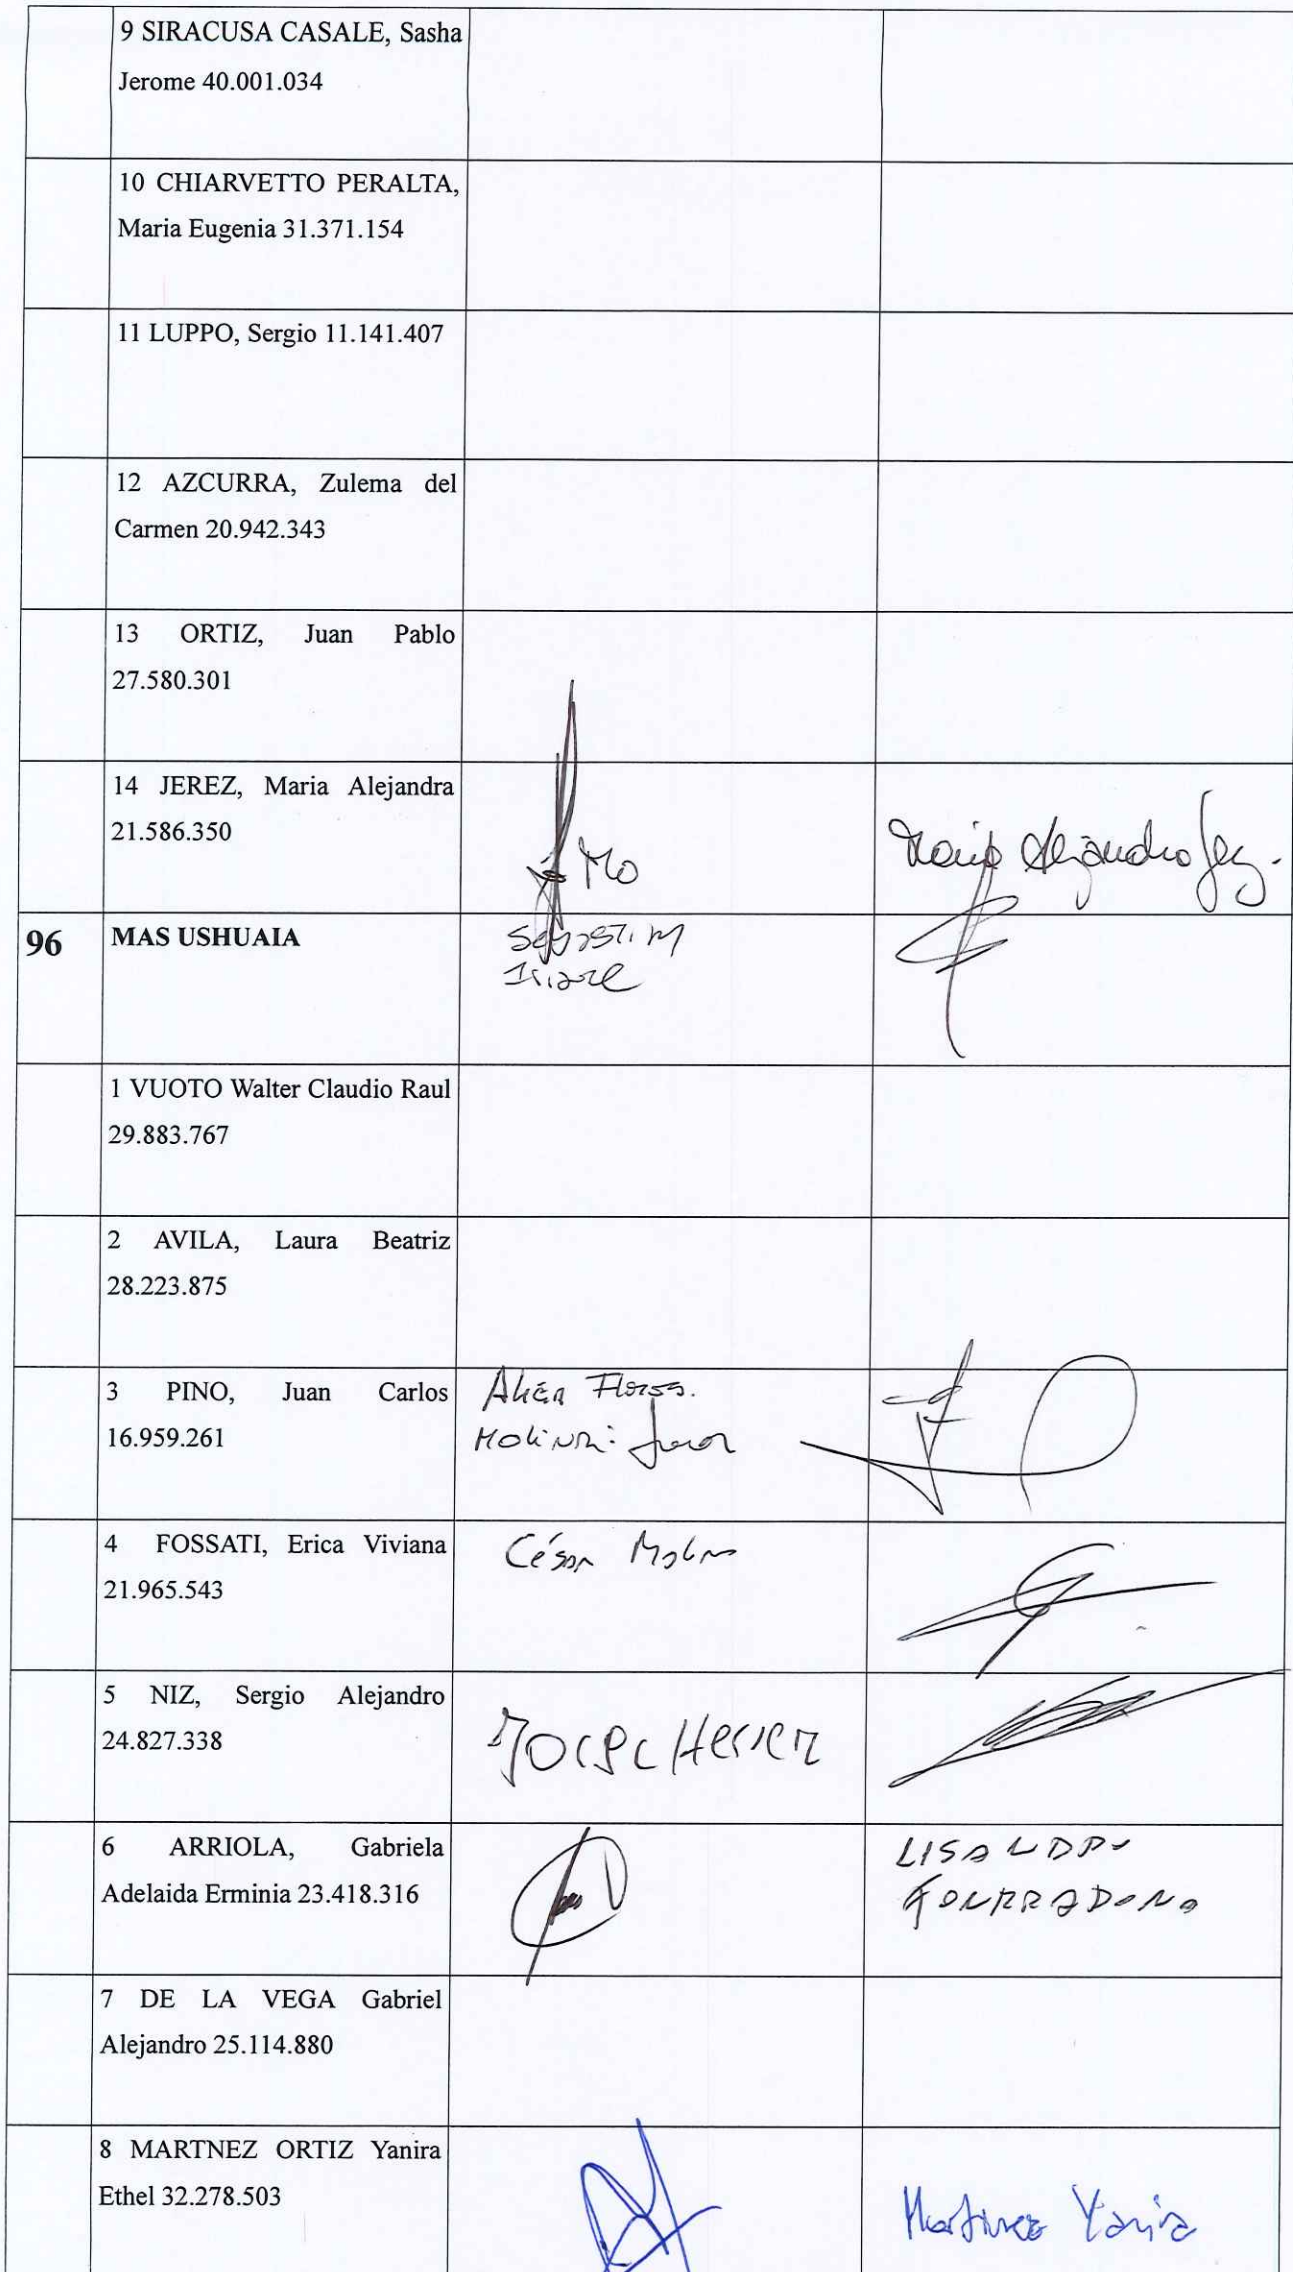 9 SIRACUSA CASALE, Sasha
Jerome 40.001.034
10 CHIARVETTO PERALTA,
Maria Eugenia 31.371.154
11 LUPPO, Sergio 11.141.407
12 AZCURRA, Zulema del
Carmen 20.942.343
13 ORTIZ, Juan Pablo
27.580.301
14 JEREZ, Maria Alejandra
21.586.350
96 MAS USHUAIA
1 VUOTO Walter Claudio Raul
29.883.767
2 AVILA, Laura Beatriz
28.223.875
3 PINO, Juan Carlos
16.959.261
4 FOSSATI, Erica Viviana
21.965.543
César
5 NIZ, Sergio Alejandro
24.827.338
6 ARRIOLA, Gabriela
Adelaida Erminia 23.418.316
7 DE LA VEGA Gabriel
Alejandro 25.114.880
8 MARTNEZ ORTIZ Yanira
Ethel 32.278.503
Martinez Yanira